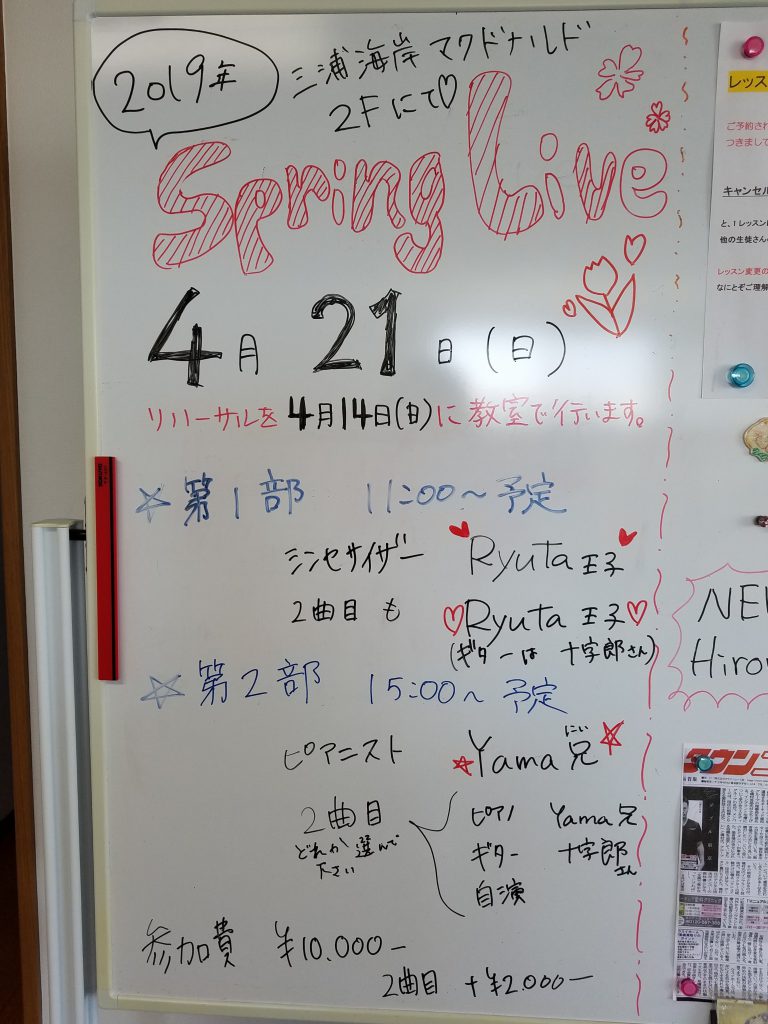 2019年
三浦海岸 マクドナルド
2Fにて♡
Spring Live
4月 21日 (日)
リハーサルを 4月14日(日)に 教室で行います。
☆ 第1部 11:00～ 予定
シンセサイザー Ryuta 王子
2曲目も ♡Ryuta 王子♡
(ギターは 十字郎さん)
☆ 第2部 15:00～ 予定
ピアニスト ☆Yama兄☆
にい
2曲目
どれか選んで
下さい
ピアノ Yama兄
ギター 十字郎さん
自演
参加費 ¥10.000-
2曲目 +¥2.000-
レッス
ご予約され
つきまして
キャンセル
と、1レッスン
他の生徒さん
レッスン変更の
なにとぞご理解
NEW
Hiro
タウン